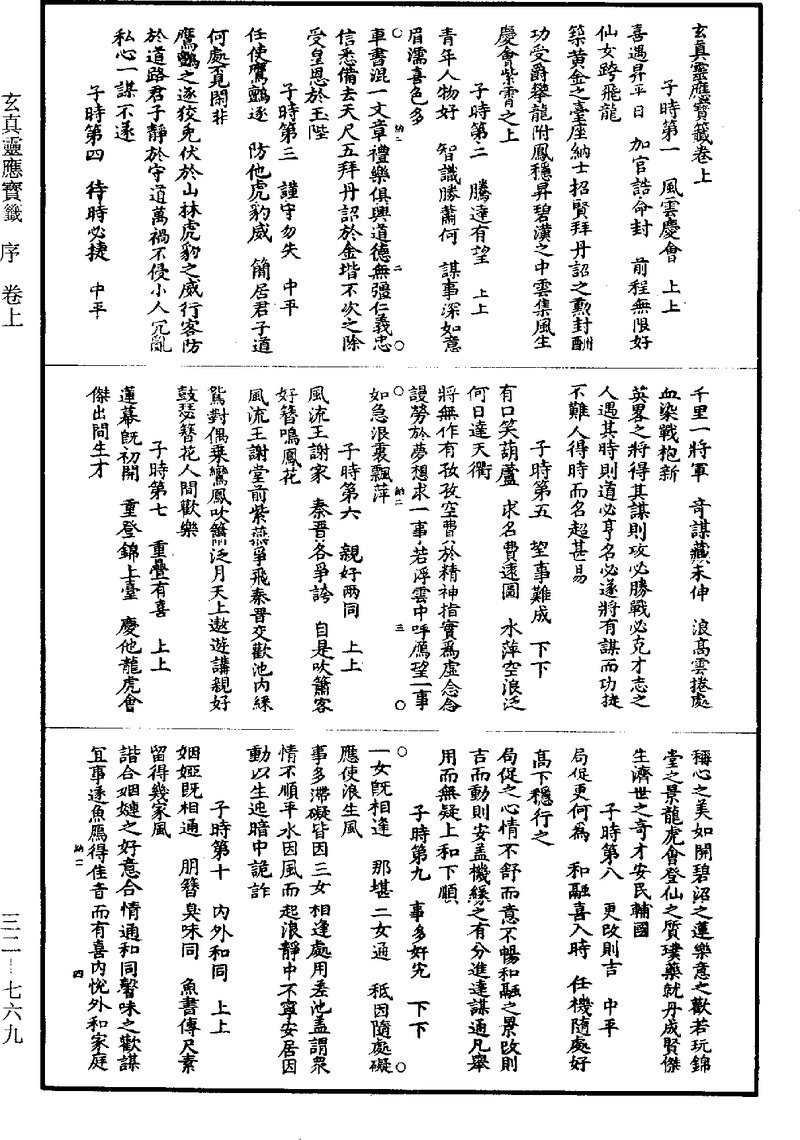 玄真靈應寶籤卷上
子時第一　風雲慶會　上上
喜遇昇平日　加官誥命封　前程無限好
仙女跨飛龍
築黃金之臺座納士招賢拜丹詔之勳封酬
功受爵攀龍附鳳穩昇碧漢之中雲集風生
慶會紫霄之上
子時第二　騰達有望　上上
青年人物好　智識勝蕭何　謀事深如意
眉濡喜色多
車書混一文章禮樂俱興道德無彊仁義忠
信悉備去天尺五拜丹詔於金堦不次之除
受皇恩於玉陛
子時第三　謹守勿失　中平
任使鷹鸇逐　防他虎豹威　簡居君子道
何處覓閑非
鷹鸇之逐狡兔伏於山林虎豹之威行客防
於道路君子靜於守道萬禍不侵小人冗亂
私心一謀不遂
子時第四　待時必捷　中平
千里一將軍　奇謀藏未伸　浪高雲捲處
血染戰袍新
英畧之將得其謀則攻必勝戰必克才志之
人遇其時則道必亨名必遂將有謀而功捷
不難人得時而名超甚易
子時第五　望事難成　下下
有口笑葫蘆　求名費遠圖　水萍空浪泛
何日達天衢
將無作有孜孜空費於精神指實爲虛念念
謾勞於夢想求一事若浮雲中呼鴈望一事
如急浪裏飄萍
子時第六　親好兩同　上上
風流王謝家　秦晉各爭誇　自是吹簫客
好簪鳴鳳花
風流王謝堂前紫燕爭飛秦晉交歡池內綵
鴛對偶乘鸞鳳吹簫泛月天上遨遊講親好
鼓瑟簪花人間歡樂
子時第七　重疊有喜　上上
蓮幕旣初開　重登錦上臺　慶他龍虎會
傑出間生才
稱心之美如開碧沼之蓮樂意之歡若玩錦
堂之景龍虎會登仙之質璞藥就丹成賢傑
生濟世之奇才安民輔國
子時第八　更改則吉　中平
局促更何爲　和融喜入時　任機隨處好
高下穩行之
局促之心情不舒而意不暢和融之景改則
吉而動則安盖機緩之有分進達謀通凡舉
用而無疑上和下順
子時第九　事多奸宄　下下
一女旣相逢　那堪二女通　秪因隨處礙
應使浪生風
事多滯礙皆因三女相逢處用差池盖謂衆
情不順平水因風而起浪靜中不寧安居因
動以生迍暗中詭詐
子時第十　內外和同　上上
姻婭旣相通　朋簪臭味同　魚書傳尺素
留得幾家風
諧合姻嫿之好意合情通和同馨味之歡謀
宜事遂魚鴈得佳音而有喜內悅外和家庭
玄真靈應寶籤　序　卷上
三二—七六九